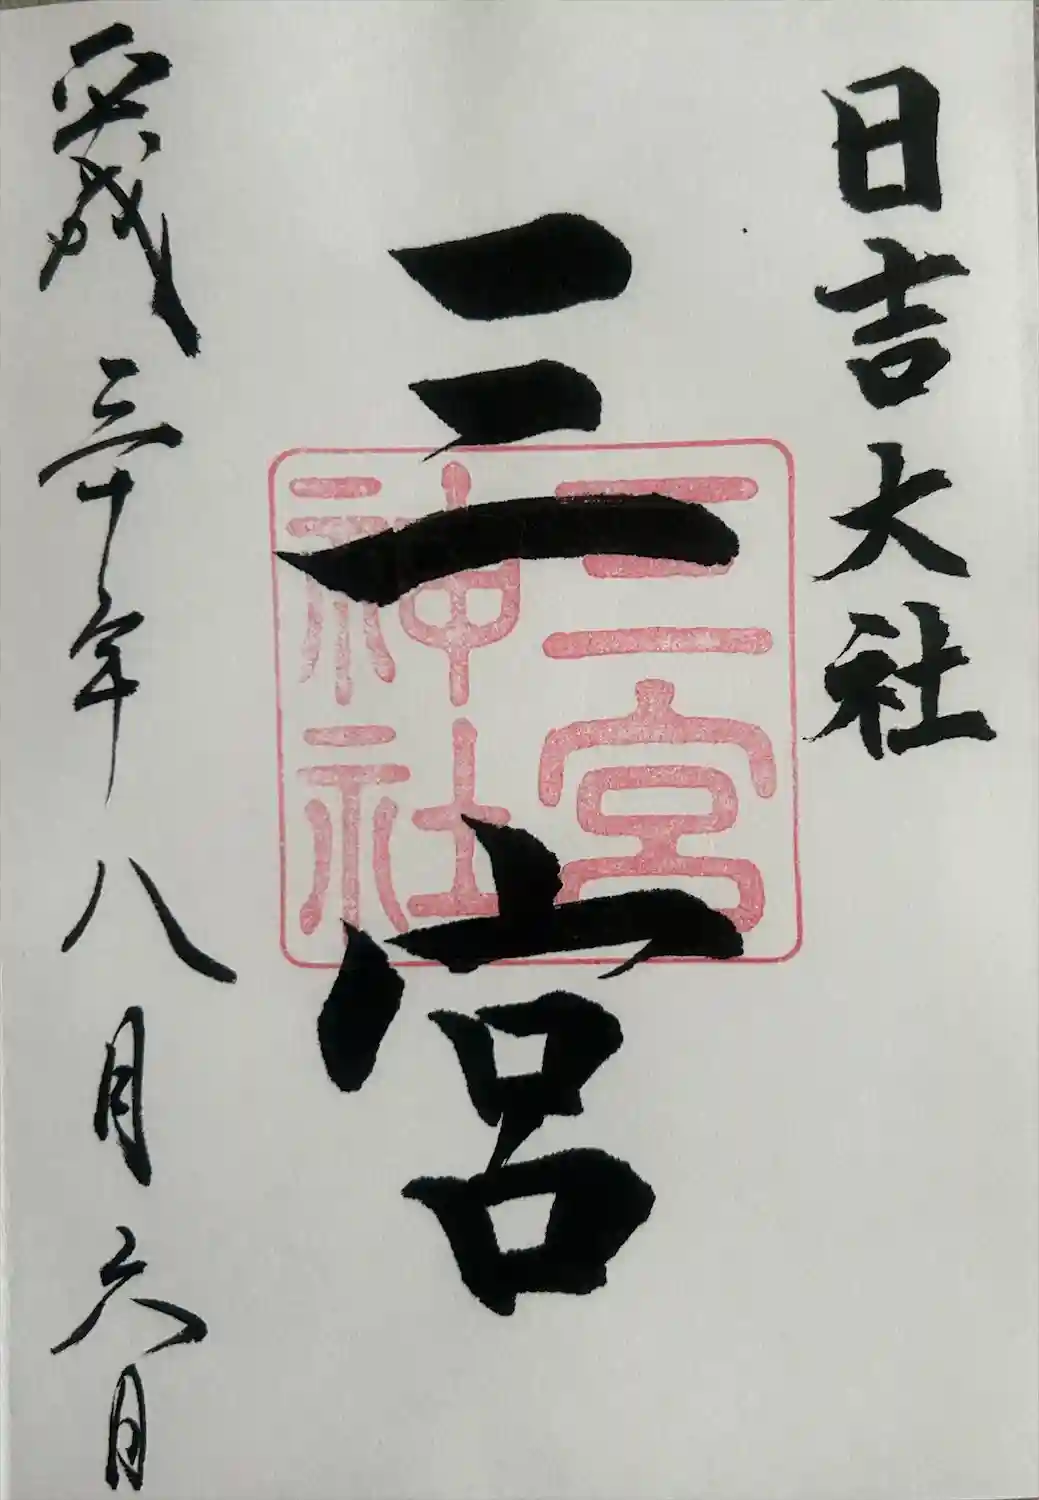 日吉大社
三宮
三宮
神社
平成三十年八月六日